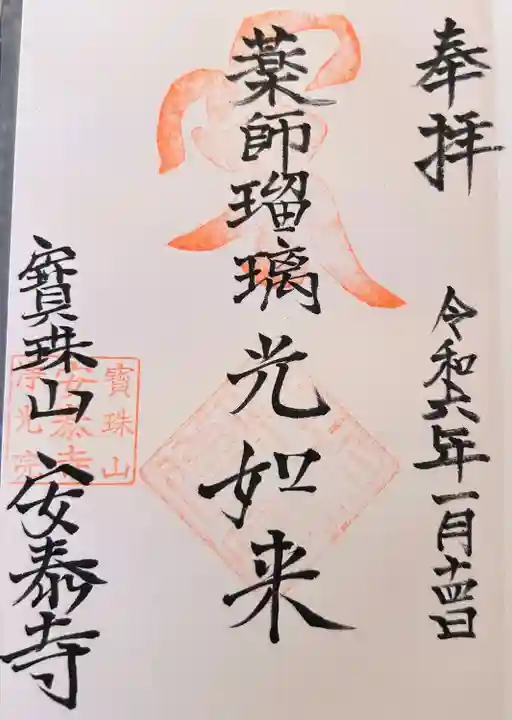 奉拝
令和六年一月十四日
薬師瑠璃光如来
寳珠山 安泰寺
寳珠山
安泰寺
浄光院